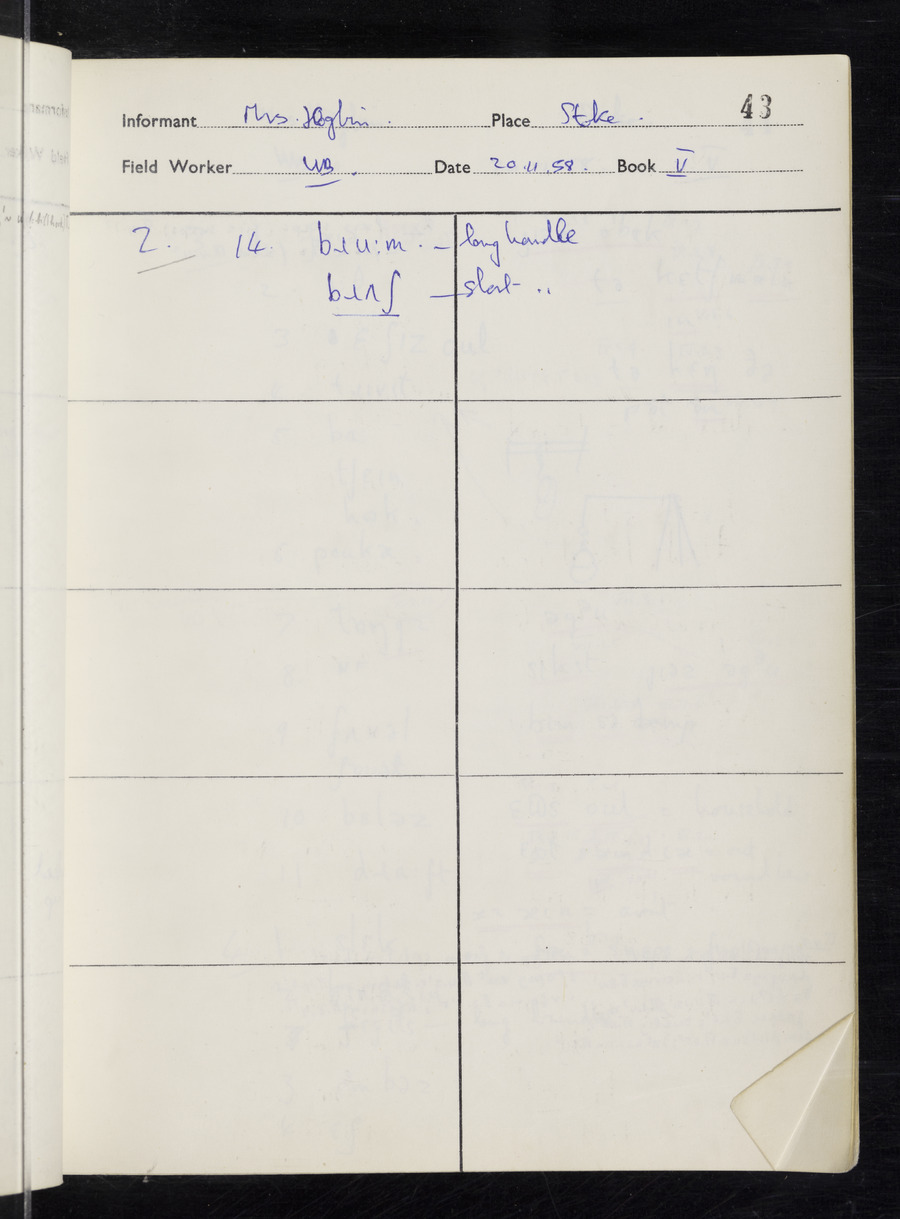 43
Informant Mrs. Hogbin. Place Stoke.
Field Worker WB. Date 20.11.58. Book V
2. 14. bɹu:m. — long handle
bɹʌʃ — short "